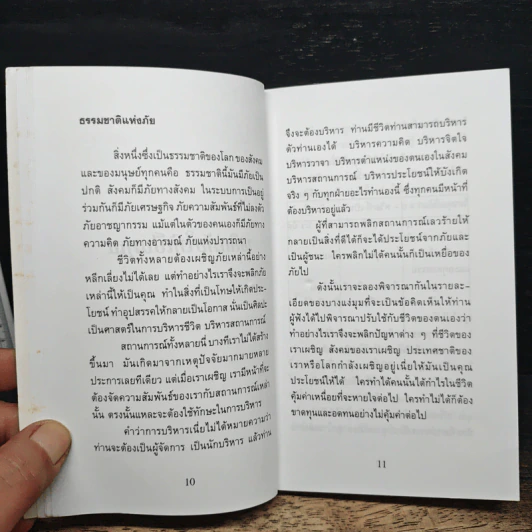 ธรรมชาติแห่งภัย
สิ่งหนึ่งซึ่งเป็นธรรมชาติของโลก ของสังคม
และของมนุษย์ทุกคนคือ ธรรมชาตินี้มันมีภัยเป็น
ปกติ สังคมก็มีภัยทางสังคม ในระบบการเป็นอยู่
ร่วมกันก็มีภัยเศรษฐกิจ ภัยความสัมพันธ์ที่ไม่ลงตัว
ภัยอาชญากรรม แม้แต่ในตัวของตนเองก็มีภัยทาง
ความคิด ภัยทางอารมณ์ ภัยแห่งปรารถนา
ชีวิตทั้งหลายต้องเผชิญภัยเหล่านี้อย่าง
หลีกเลี่ยงไม่ได้เลย แต่ทำอย่างไรเราจึงจะพลิกภัย
เหล่านี้ให้เป็นคุณ ทำในสิ่งที่เป็นโทษให้เกิดประ-
โยชน์ ทำอุปสรรคให้กลายเป็นโอกาส นั่นเป็นศิลปะ
เป็นศาสตร์ในการบริหารชีวิต บริหารสถานการณ์
สถานการณ์ทั้งหลายนี้ บางทีเราไม่ได้สร้าง
ขึ้นมา มันเกิดมาจากเหตุปัจจัยมากมายหลาย
ประการเลยทีเดียว แต่เมื่อเราเผชิญ เรามีหน้าที่จะ
ต้องจัดความสัมพันธ์ของเรากับสถานการณ์เหล่า
นั้น ตรงนั้นแหละจะต้องใช้ทักษะในการบริหาร
คำว่าการบริหารเนี่ยไม่ได้หมายความว่า
ท่านจะต้องเป็นผู้จัดการ เป็นนักบริหาร แล้วท่าน
10
จึงจะต้องบริหาร ท่านมีชีวิตท่านสามารถบริหาร
ตัวท่านเองได้ บริหารความคิด บริหารจิตใจ
บริหารวาจา บริหารตำแหน่งของตนเองในสังคม
บริหารสถานการณ์ บริหารประโยชน์ให้บังเกิด
จริง ๆ กับทุกฝ่ายอะไรทำนองนี้ ซึ่งทุกคนมีหน้าที่
ต้องบริหารอยู่แล้ว
ผู้ที่สามารถพลิกสถานการณ์เลวร้ายให้
กลายเป็นสิ่งที่ดีได้ก็จะได้ประโยชน์จากภัยและ
เป็นผู้ชนะ ใครพลิกไม่ได้คนนั้นก็เป็นเหยื่อของ
ภัยไป
ดังนั้นเราจะลองพิจารณากันในรายละ-
เอียดของบางแง่มุมที่จะเป็นข้อคิดเห็นให้ท่าน
ผู้ฟังได้ไปพิจารณาปรับใช้กับชีวิตของตนเองว่า
ทำอย่างไรเราจึงจะพลิกปัญหาต่าง ๆ ที่ชีวิตของ
เราเผชิญ สังคมของเราเผชิญ ประเทศชาติของ
เราหรือโลกกำลังเผชิญอยู่เนี่ยให้มันเป็นคุณเป็น
ประโยชน์ให้ได้ ใครทำได้คนนั้นได้กำไรในชีวิต
คุ้มค่าเหนื่อยที่จะหายใจต่อไป ใครทำไม่ได้ก็ต้อง
ขาดทุนและอดทนอย่างไม่คุ้มค่าต่อไป
11